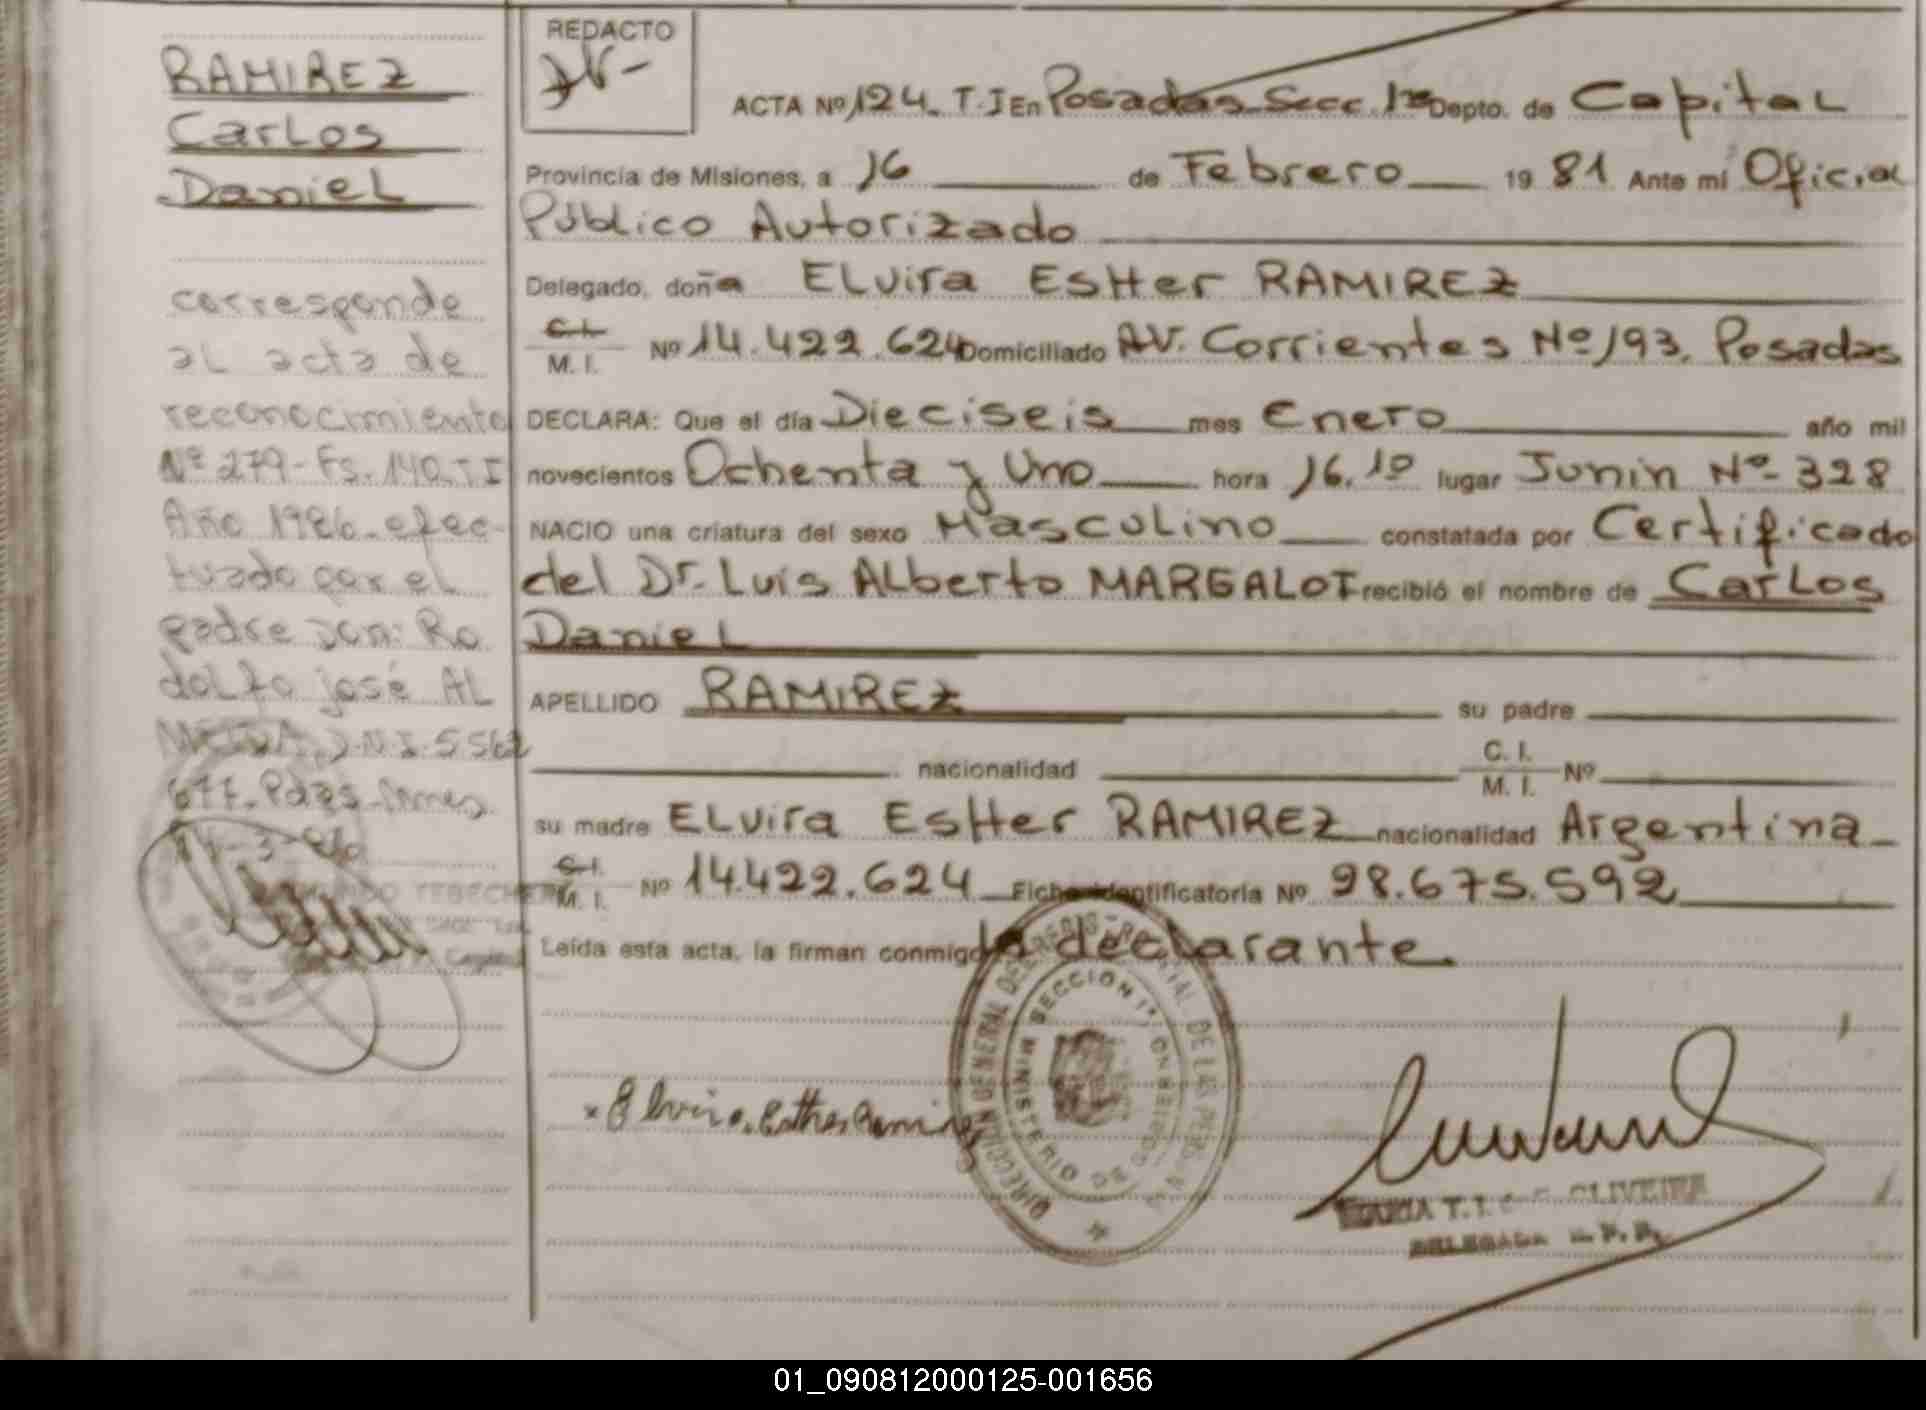 RAMIREZ
Carlos
Daniel
corresponde
al acta de
reconocimiento
Nº 279-Fs.140.TI
Año 1986.efec-
tuado por el
padre Don: Ro
dolfo josé AL
D.N.I. 5562
677. Pdas.
REDACTO
ACTA Nº 124. T.I En Posadas Secc. 1ra Depto. de Capital
Provincia de Misiones, a 16 de Febrero 1981 Ante mí Oficial
Público Autorizado
Delegado, doña ELvira EsHer RAMIREZ
C.I.
M. I. Nº 14.422.624 Domiciliado AV. Corrientes Nº 193. Posadas
DECLARA: Que el día Dieciseis mes Enero año mil
novecientos Ochenta y Uno hora 16.10 lugar Junin Nº- 328
NACIO una criatura del sexo Masculino constatada por Certificado
del Dr. Luis ALberto MARGALOT recibió el nombre de Carlos
Daniel
APELLIDO RAMIREZ su padre
nacionalidad C. I.
M. I. Nº
su madre ELvira EsHer RAMIREZ nacionalidad Argentina
C.I.
M. I. Nº 14.422.624 Ficha identificatoria Nº 98.675.592
Leída esta acta, la firman conmigo la declarante.
DIRECCION GENERAL DEL REGISTRO PROVINCIAL DE LAS PERSONAS
MINISTERIO DE GOBIERNO
SECCION 1ra
Elvira Esther Ramirez
MARIA T. OLIVEIRA
DELEGADA
01_090812000125-001656